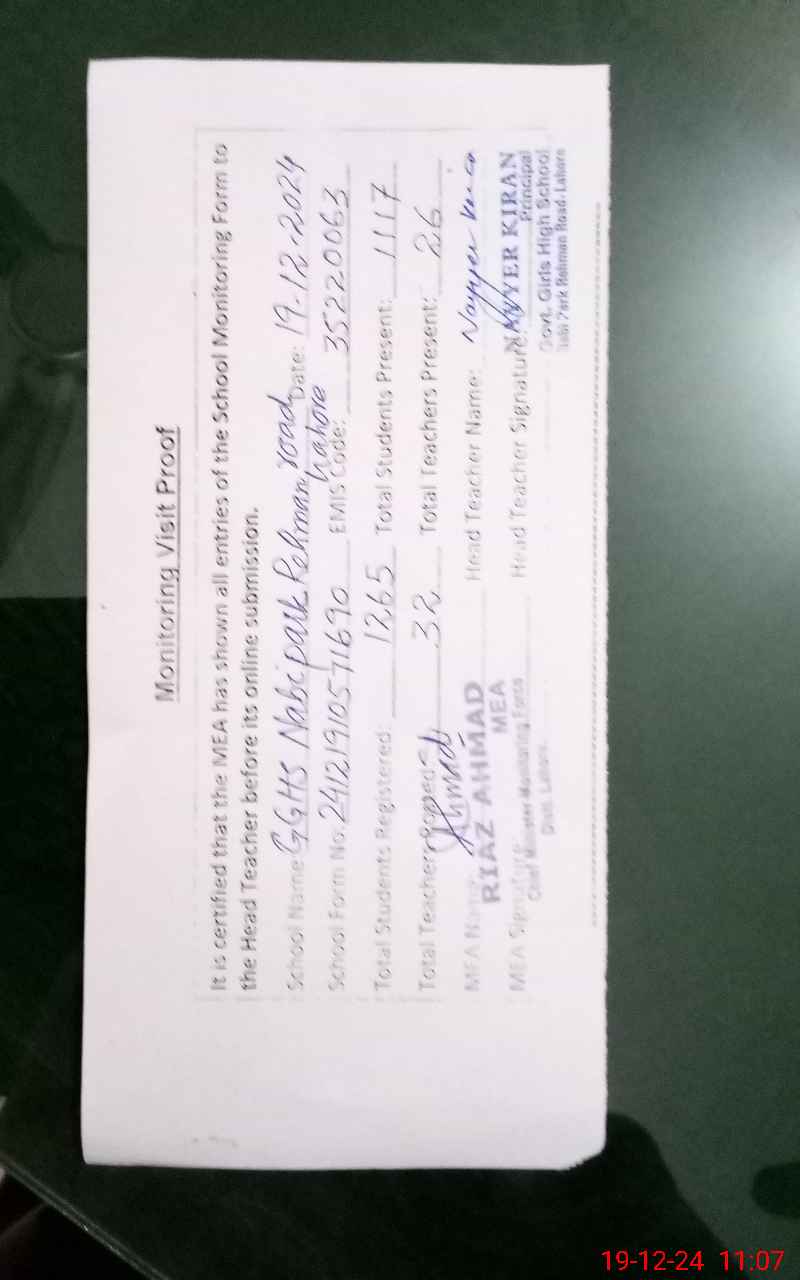 Monitoring Visit Proof
It is certified that the MEA has shown all entries of the School Monitoring Form to
the Head Teacher before its online submission.
School Name: GGHS Nabi park Rehman road Lahore Date: 19-12-2024
School Form No: 2412191057169 0 EMIS Code: 35220063
Total Students Registered: 1265 Total Students Present: 1117
Total Teachers Posted: 32 Total Teachers Present: 26
MEA Name: Ahmad Head Teacher Name: Nayyer Kiran
RIAZ AHMAD
MEA
MEA Signature: Head Teacher Signature:
NAYYER KIRAN
Principal
Chief Minister Monitoring Force
Distt. Lahore.
Govt. Girls High School
Nabi Park Rehman Road, Lahore
19-12-24 11:07